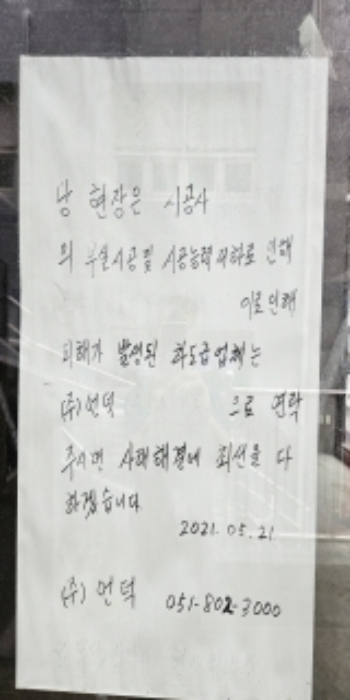 낭 현장은 시공사
의 부실시공 및 시공능력 저하로 인해
이로인해
피해가 발생된 하도급업체는
(주)언덕 으로 연락
주시면 사태해결에 최선을 다
하겠습니다
2021. 05. 21
(주) 언덕 051-802-3000